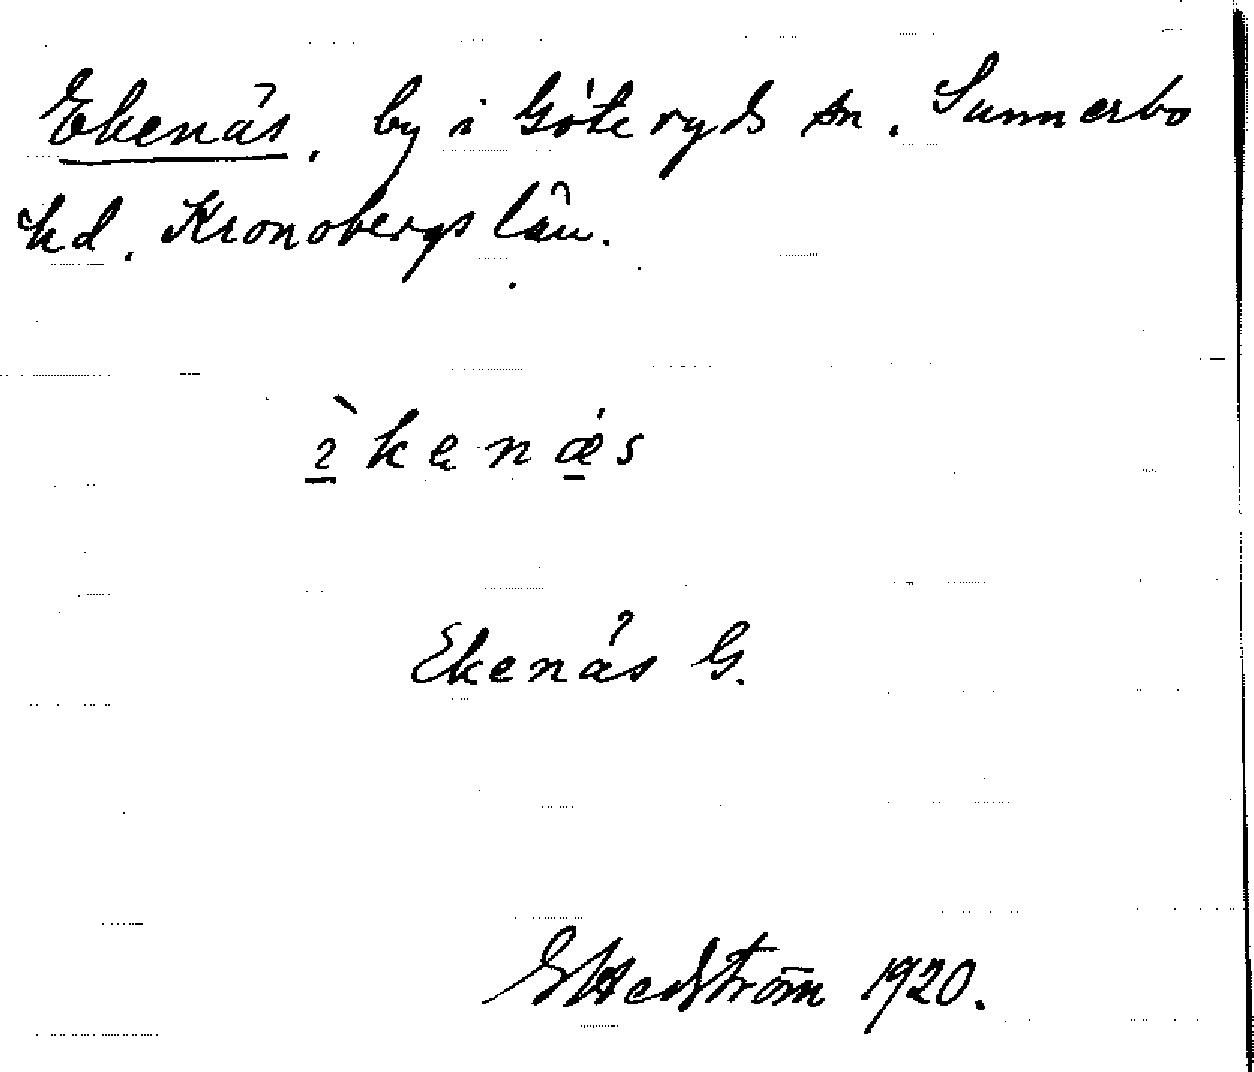 Ekenäs, by i Göteryds sn, Sunnerbo
hd, Kronobergs län.
èkenæs
Ekenäs G.
G Hedström 1920.